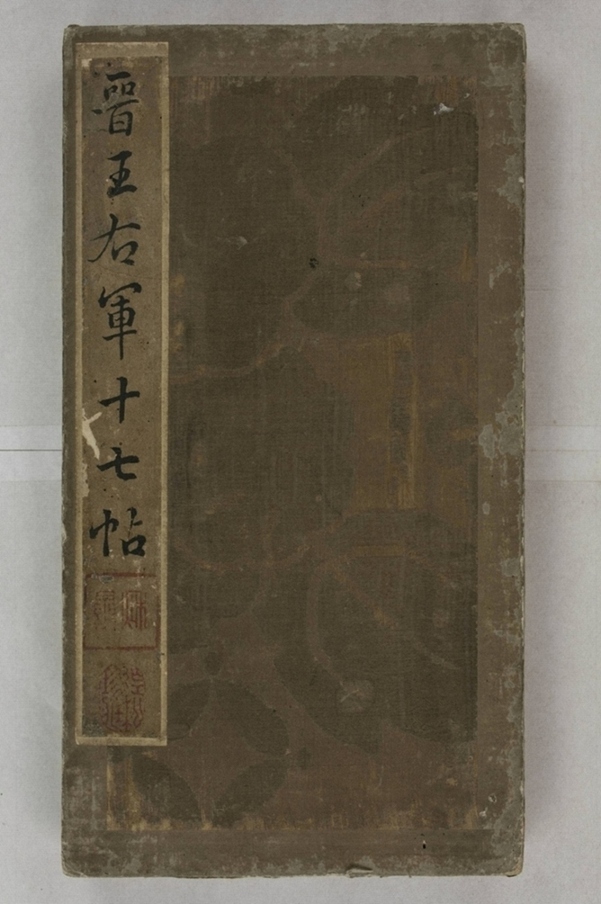 晉王右軍十七帖